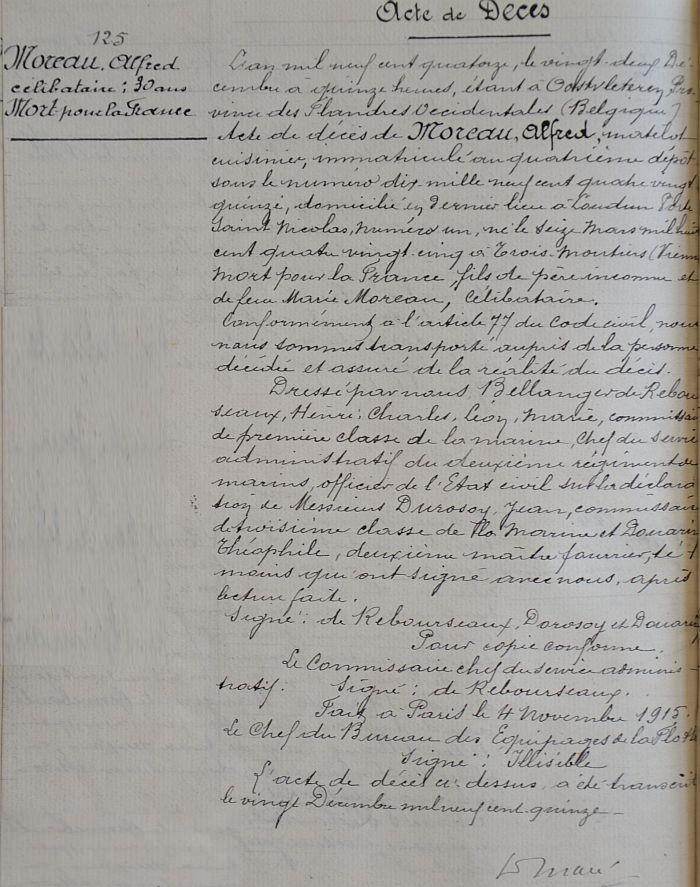 Acte de Décès
125
Moreau, Alfred
célibataire; 30 ans
Mort pour la France
L'an mil neuf cent quatorze, le vingt-deux Dé-
cembre à quinze heures, étant à Oostvleteren, Pro
vince des Flandres Occidentales (Belgique)
Acte de décès de Moreau, Alfred, matelot
cuisinier, immatriculé au quatrième dépôt
sous le numéro dix mille neuf cent quatre vingt
quinze, domicilié en dernier lieu à Loudun Porte
Saint Nicolas, numéro un, né le seize Mars mil huit
cent quatre vingt-cinq à Trois-Moutiers (Vienne
Mort pour la France, fils de père inconnu et
de feue Marie Moreau, célibataire.
Conformément à l'article 77 du Code civil, nous
nous sommes transporté auprès de la personne
décédée et assuré de la réalité du décès.
Dressé par nous, Bellanger de Rebour
seaux, Henri, Charles, Léon, Marie, commissaire
de première classe de la marine, Chef du service
administratif du deuxième régiment de
marins, officier de l'Etat civil sur la déclara
tion de Messieurs Durosoy, Jean, commissaire
de troisième classe de la Marine et Douarin
Théophile, deuxième maître fourrier, té-
moins qui ont signé avec nous, après
lecture faite.
Signé: de Rebourseaux, Dorosoy et Douarin
Pour copie conforme,
Le Commissaire chef du service adminis-
tratif. Signé: de Rebourseaux.
Fait à Paris le 4 Novembre 1915.
Le Chef du Bureau des Equipages de la Flotte
Signé: Illisible
L'acte de décès ci-dessus a été transcrit
le vingt Décembre mil neuf cent quinze –